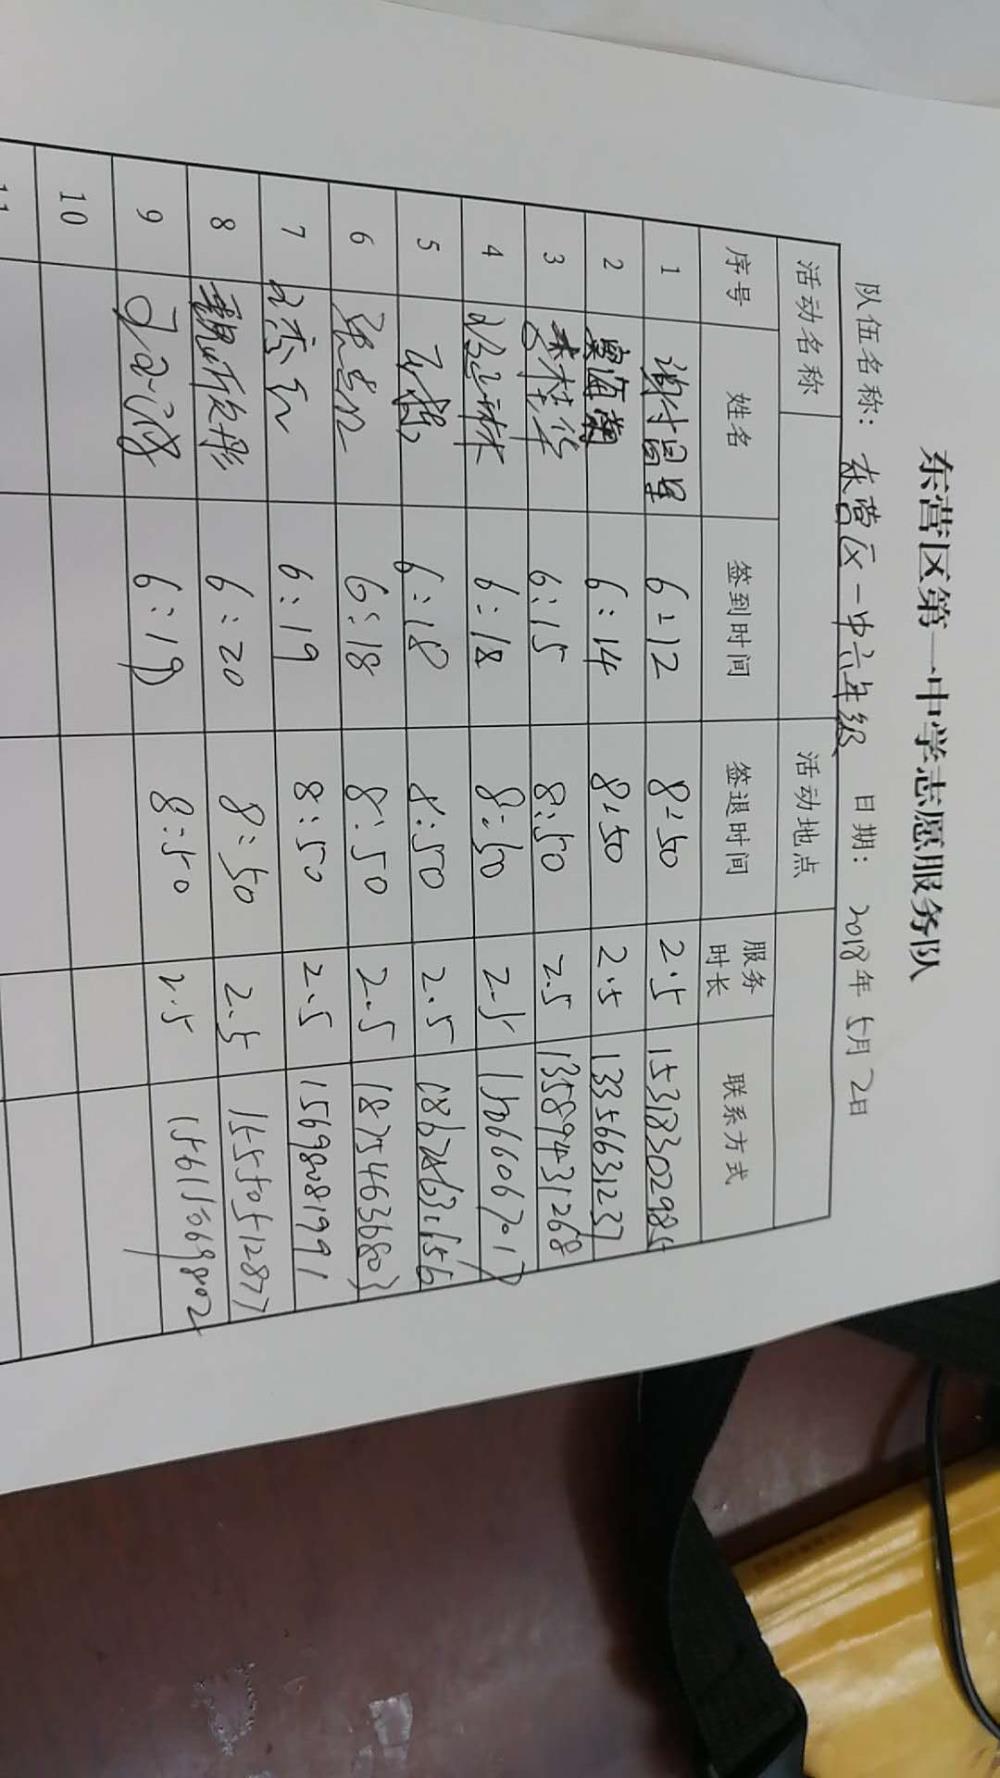 东营区第一中学志愿服务队
队伍名称： 东营区一中六年级 日期： 2018年 5月 2日
活动名称 活动地点
序号 姓名 签到时间 签退时间 服务时长 联系方式
1 6:12 8:50 2.5 15318302985
2 海菊 6:14 8:50 2.5 13356631237
3 6:15 8:50 2.5 13589431268
4 6:18 8:50 2.5 15066067017
5 6:18 8:50 2.5
6 6:18 8:50 2.5 18754636803
7 6:19 8:50 2.5 15698081991
8 魏欣彤 6:20 8:50 2.5 15550512877
9 6:19 8:50 2.5 15615069802
10
11